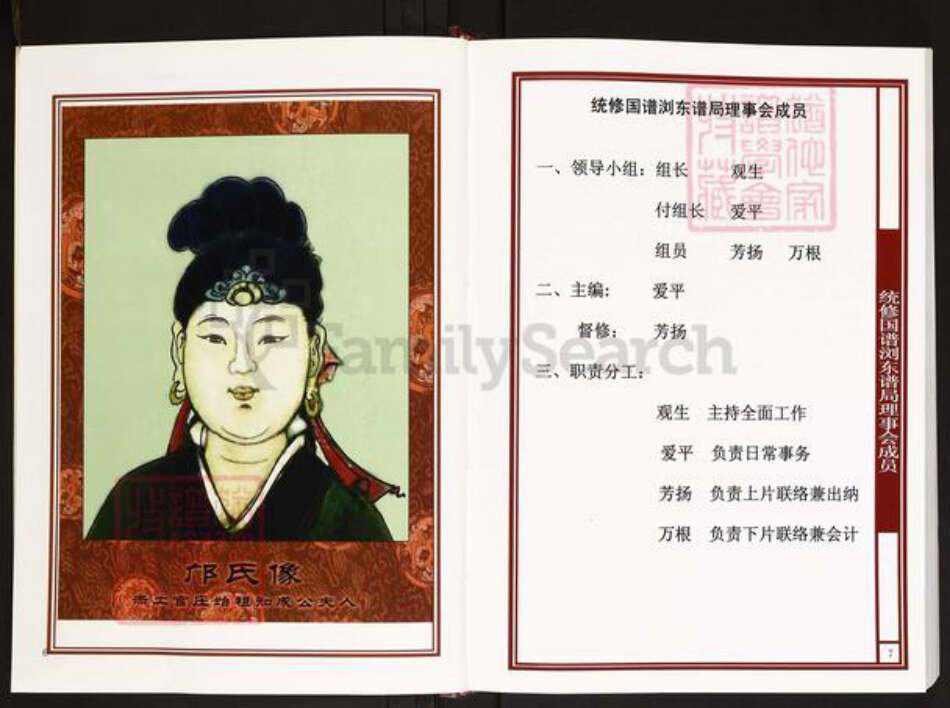 邝氏像
夫人
统修国谱浏东谱局理事会成员
一、领导小组：组长 观生
付组长 爱平
组员 芳扬 万根
二、主编： 爱平
督修： 芳扬
三、职责分工：
观生 主持全面工作
爱平 负责日常事务
芳扬 负责上片联络兼出纳
万根 负责下片联络兼会计
统修国谱浏东谱局理事会成员
7
FamilySearch